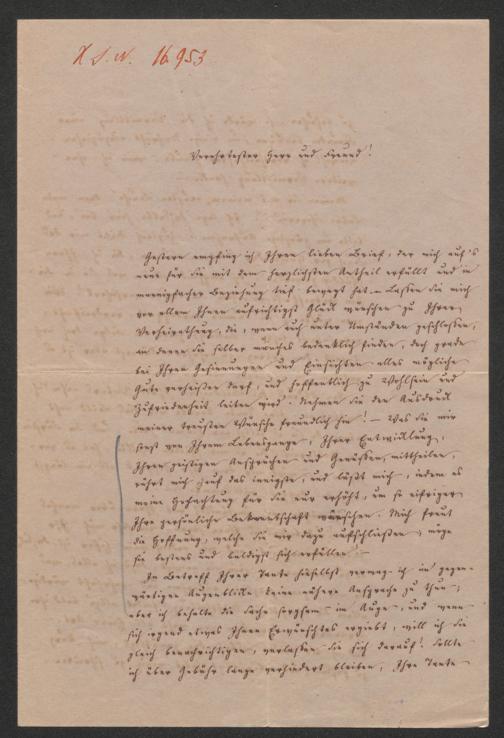 H. I. N. 16953
Verehrtester Herr und Freund!
Gestern empfing ich Ihren lieben Brief, der mich auf's
neue für Sie mit dem herzlichsten Antheil erfüllt und in
mannigfacher Beziehung tief bewegt hat. Lassen Sie mich
vor allem Ihnen aufrichtigst Glück wünschen zu Ihrer
Verheirathung, die, wenn auch unter Umständen geschlossen,
an denen Sie selber manches bedenklich finden, doch grade
bei Ihren Gesinnungen und Einsichten alles mögliche
Gute verheißen darf, und hoffentlich zu Wohlsein und
Zufriedenheit leiten wird. Nehmen Sie den Ausdruck
meiner treusten Wünsche freundlich hin! – Was Sie mir
sonst von Ihrem Lebensgange, Ihrer Entwicklung,
Ihren geistigen Ansprüchen und Genüssen, mittheilen,
rührt mich auf das innigste, und läßt mich, indem es
meine Hochachtung für Sie nur erhöht, um so eifriger
Ihre persönliche Bekanntschaft wünschen. Mich freut
die Hoffnung, welche Sie mir dazu aufschließen, möge
sie bestens und baldigst sich erfüllen! –
In Betreff Ihrer Tante hieselbst vermag ich im gegen-
wärtigen Augenblicke keine nähere Ansprache zu thun,
aber ich behalte die Sache sorgsam im Auge, und wenn
sich irgend etwas Ihnen Erwünschtes ergiebt, will ich Sie
gleich benachrichtigen, verlassen Sie sich darauf! Sollte
ich über Gebühr lange verhindert bleiben, Ihre Tante